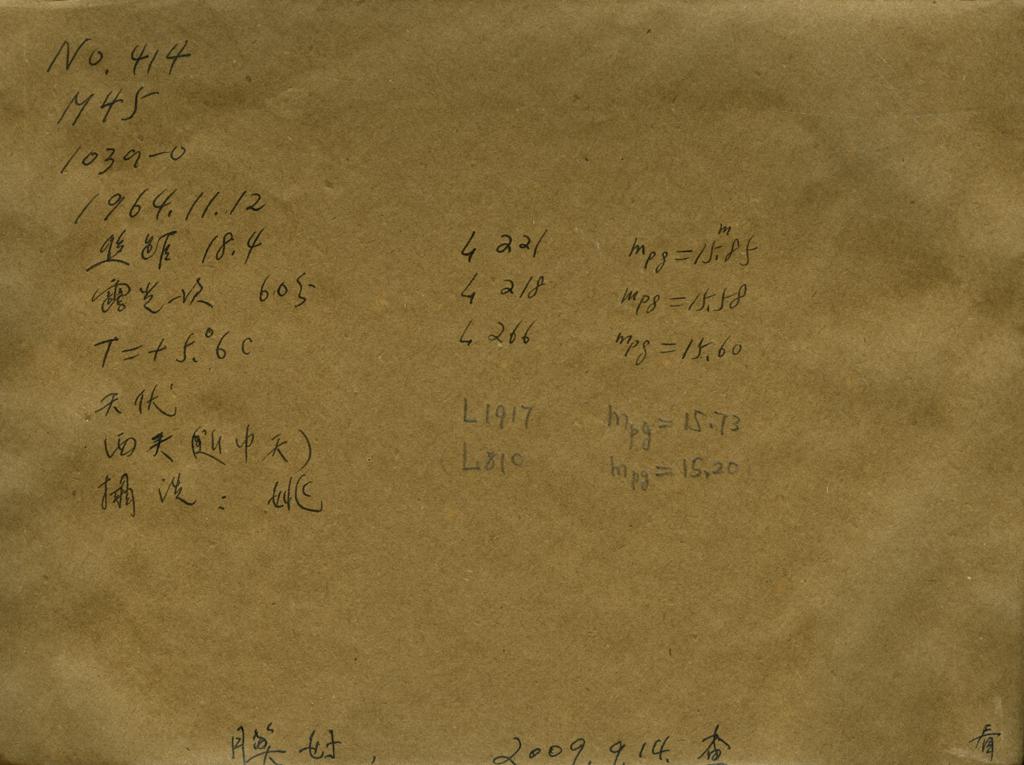 No. 414
M45
103a-0
1964.11.12
焦距 18.4
露光 次 60分
T=+5.°6C
天
西天(近中天)
攝 洗: 姚
L 221 mpg=15.ᵐ85
L 218 mpg=15.58
L 266 mpg=15.60
L1917 mpg=15.73
L810 mpg=15.20
2009.9.14. 查
看